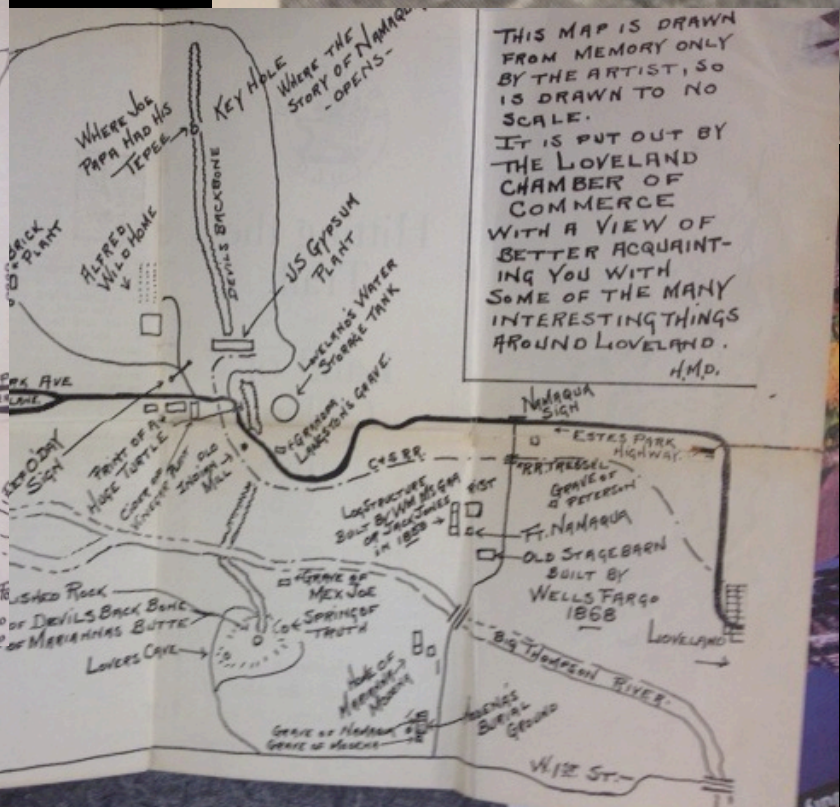 THIS MAP IS DRAWN
FROM MEMORY ONLY
BY THE ARTIST, SO
IS DRAWN TO NO
SCALE.
IT IS PUT OUT BY
THE LOVELAND
CHAMBER OF
COMMERCE
WITH A VIEW OF
BETTER ACQUAINT-
ING YOU WITH
SOME OF THE MANY
INTERESTING THINGS
AROUND LOVELAND.
H.M.D.
WHERE JOE
PAPA HAD HIS
TEPEE
KEY HOLE
WHERE THE
STORY OF NAMAQUA
-OPENS-
DEVILS BACKBONE
BRICK
PLANT
ALFRED
WILD HOME
US GYPSUM
PLANT
LOVELAND'S WATER
STORAGE TANK
GRANDPA
LANGSTON'S GRAVE.
AVE
SIGN
PRINT OF A
HUGE TURTLE
CIDER OR
VINEGAR PLANT
OLD
INDIAN
MILL
C&S RR.
NAMAQUA
SIGN
ESTES PARK
HIGHWAY
R.R. TRESSEL
GRAVE OF
PETERSON
LOG STRUCTURE
BUILT BY WM MCGAA
OR JACK JONES
IN 1858
FT. NAMAQUA
OLD STAGE BARN
BUILT BY
WELLS FARGO
1868
LOVELAND
ROCK
OF DEVILS BACK BONE
OF MARIANNAS BUTTE
LOVERS CAVE
GRAVE OF
MEX JOE
SPRING OF
TRUTH
HOME OF
MARIANNA
MODENA
BIG THOMPSON RIVER.
MODENA'S
BURIAL
GROUND
GRAVE OF NAMAQUA
GRAVE OF MODENA
W. 1ST ST.-